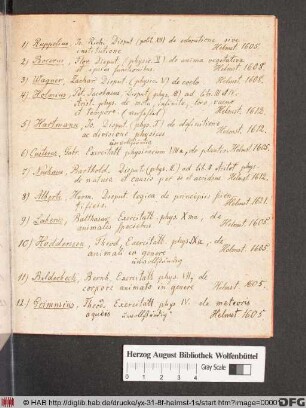 1) Ruppelius, Jo. Richi, Disput. (polit. VII) de educatione sive
institutione Helmst. 1605.
2) Disput. (physic. X) de anima vegetativa
Helmst. 1608.
3) Wagner, Zachar. Disput. (physica V) de coelo. Helmst. 1605.
4) Disput. (phys. III) ad lib. III et IV
Arist. phys. de motu, infinito, loco vacuo
et tempore. Helmst. 1612.
5) Hartmann, Jo. Disput. (phys. I) de definitione
ac divisione physices Helmst. 1605.
unvollständig
6) Exercitatt. physicarum de plantis. Helmst. 1605.
7) Barthold. Disput. (phys. II) ad lib. II Aristot. phys.
de natura et causis per se et accidens Helmst. 1612.
8) Disput. logica de principiis
Helmst. 1621.
9) Balthasar, Exercitatt. phys. Xma, de
animalis speciebus Helmst. 1605
10) Theod., Exercitatt. phys. IXa, de
animali in genere Helmst. 1605.
unvollständig
11) Bernh. Exercitatt. phys. VII, de
corpore animato in genere Helmst. 1605.
12) Exercitatt. phys. IV. de meteoris
aqueis unvollständig Helmst. 1605
Herzog August Bibliothek Wolfenbüttel
Gray Scale
© HAB http://diglib.hab.de/drucke/yx-31-8f-helmst-1s/start.htm?image=00000
DFG